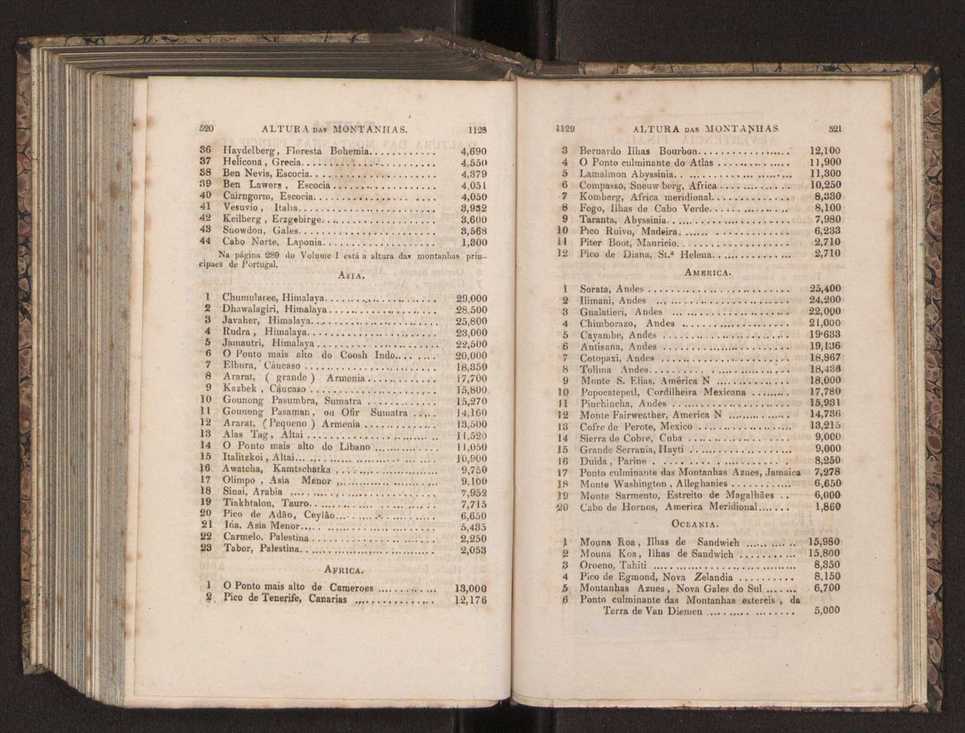 520 ALTURA DAS MONTANHAS. 1128
36 Haydelberg, Floresta Bohemia. 4,690
37 Helicona, Grecia. 4,550
38 Ben Nevis, Escocia. 4,379
39 Ben Lawers, Escocia 4,051
40 Cairngorm, Escocia. 4,050
41 Vesuvio, Italia. 3,932
42 Keilberg, Erzgebirge. 3,600
43 Snowdon, Gales. 3,568
44 Cabo Norte, Laponia. 1,300
Na página 289 do Volume I está a altura das montanhas prin-
cipaes de Portugal.
ASIA.
1 Chumularee, Himalaya. 29,000
2 Dhawalagiri, Himalaya 28,500
3 Javaher, Himalaya. 25,800
4 Rudra, Himalaya. 23,000
5 Jamautri, Himalaya 22,500
6 O Ponto mais alto do Coosh Indo. 20,000
7 Elbura, Cáucaso 18,350
8 Ararat, (grande) Armenia 17,700
9 Kazbek, Cáucaso 15,800
10 Gounong Pasumbra, Sumatra 15,270
11 Gounong Pasaman, ou Ofir Sumatra 14,160
12 Ararat, (Pequeno) Armenia 13,500
13 Alas Tag, Altai 11,520
14 O Ponto mais alto do Libano 11,050
15 Italitzkoi, Altai. 10,900
16 Awatcha, Kamtschatka 9,750
17 Olimpo, Asia Menor 9,100
18 Sinai, Arabia 7,952
19 Tiakhtalon, Tauro. 7,715
20 Pico de Adão, Ceylão 6,650
21 Ida, Asia Menor. 5,435
22 Carmelo, Palestina 2,250
23 Tabor, Palestina. 2,053
AFRICA.
1 O Ponto mais alto de Cameroes 13,000
2 Pico de Tenerife, Canarias 12,176
1129 ALTURA DAS MONTANHAS 521
3 Bernardo Ilhas Bourbon. 12,100
4 O Ponto culminante do Atlas 11,900
5 Lamalmon Abyssinia. 11,300
6 Compasso, Sneuw-berg, Africa 10,250
7 Komberg, Africa meridional. 8,330
8 Fogo, Ilhas de Cabo Verde. 8,100
9 Taranta, Abyssinia. 7,980
10 Pico Ruivo, Madeira. 6,233
11 Piter Boot, Mauricio. 2,710
12 Pico de Diana, St.ª Helena. 2,710
AMERICA.
1 Sorata, Andes 25,400
2 Ilimani, Andes 24,200
3 Gualatieri, Andes 22,000
4 Chimborazo, Andes 21,000
5 Cayambe, Andes 19,633
6 Antisana, Andes 19,136
7 Cotopaxi, Andes 18,867
8 Tolima Andes. 18,436
9 Monte S. Elias, América N 18,000
10 Popocatepetl, Cordilheira Mexicana 17,780
11 Pinchincha, Andes 15,931
12 Monte Fairwesther, America N 14,736
13 Cofre de Perote, Mexico 13,215
14 Sierra de Cobre, Cuba 9,000
15 Grande Serrania, Hayti 9,000
16 Duida, Parine 8,250
17 Ponto culminante das Montanhas Azues, Jamaica 7,278
18 Monte Washington, Alleghanies 6,650
19 Monte Sarmento, Estreito de Magalhães 6,000
20 Cabo de Hornos, America Meridional 1,860
OCEANIA.
1 Mouna Roa, Ilhas de Sandwich 15,980
2 Mouna Koa, Ilhas de Sandwich 15,800
3 Oroeno, Tahiti 8,350
4 Pico de Egmond, Nova Zelandia 8,150
5 Montanhas Azues, Nova Gales do Sul 6,700
6 Ponto culminante das Montanhas estereis, da
Terra de Van Diemen 5,000